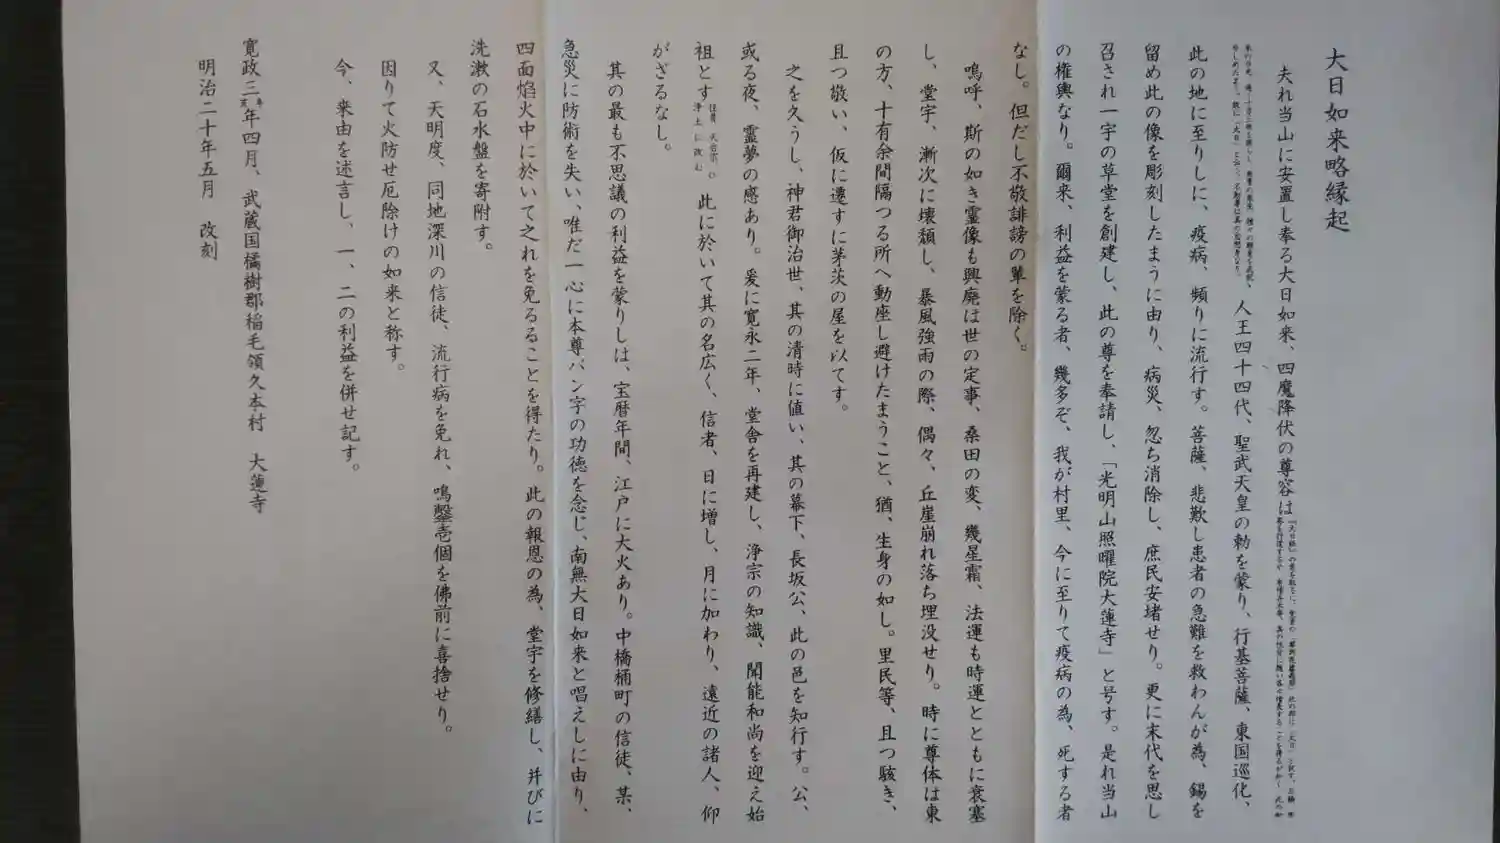 大日如来略縁起
夫れ当山に安置し奉る大日如来、四魔降伏の尊容は
人王四十四代、聖武天皇の勅を蒙り、行基菩薩、東国巡化、
此の地に至りしに、疫病、頻りに流行す。菩薩、悲歎し患者の急難を救わんが為、錫を
留め此の像を彫刻したまうに由り、病災、忽ち消除し、庶民安堵せり。更に末代を思し
召され一宇の草堂を創建し、此の尊を奉請し、「光明山照曜院大蓮寺」と号す。是れ当山
の権輿なり。爾来、利益を蒙る者、幾多ぞ、我が村里、今に至りて疫病の為、死する者
なし。但だし不敬誹謗の輩を除く。
嗚呼、斯の如き霊像も興廃は世の定事、桑田の変、幾星霜、法運も時運とともに衰塞
し、堂宇、漸次に壊頽し、暴風強雨の際、偶々、丘崖崩れ落ち埋没せり。時に尊体は東
の方、十有余間隔つる所へ動座し避けたまうこと、猶、生身の如し。里民等、且つ駭き、
且つ敬い、仮に遷すに茅茨の屋を以てす。
之を久うし、神君御治世、其の清時に値い、其の幕下、長坂公、此の邑を知行す。公、
或る夜、霊夢の感あり。爰に寛永二年、堂舎を再建し、浄宗の知識、聞能和尚を迎え始
祖とす 往昔 天台宗 浄土に改む。此に於いて其の名広く、信者、日に増し、月に加わり、遠近の諸人、仰
がざるなし。
其の最も不思議の利益を蒙りしは、宝暦年間、江戸に大火あり。中橋桶町の信徒、某、
急災に防術を失い、唯だ一心に本尊バン字の功徳を念じ、南無大日如来と唱えしに由り、
四面焰火中に於いて之れを免るることを得たり。此の報恩の為、堂宇を修繕し、并びに
洗漱の石水盤を寄附す。
又、天明度、同地深川の信徒、流行病を免れ、鳴鏧壱個を佛前に喜捨せり。
因りて火防せ厄除けの如来と称す。
今、来由を述言し、一、二の利益を併せ記す。
寛政三年四月、武蔵国橘樹郡稲毛領久本村 大蓮寺
明治二十年五月 改刻